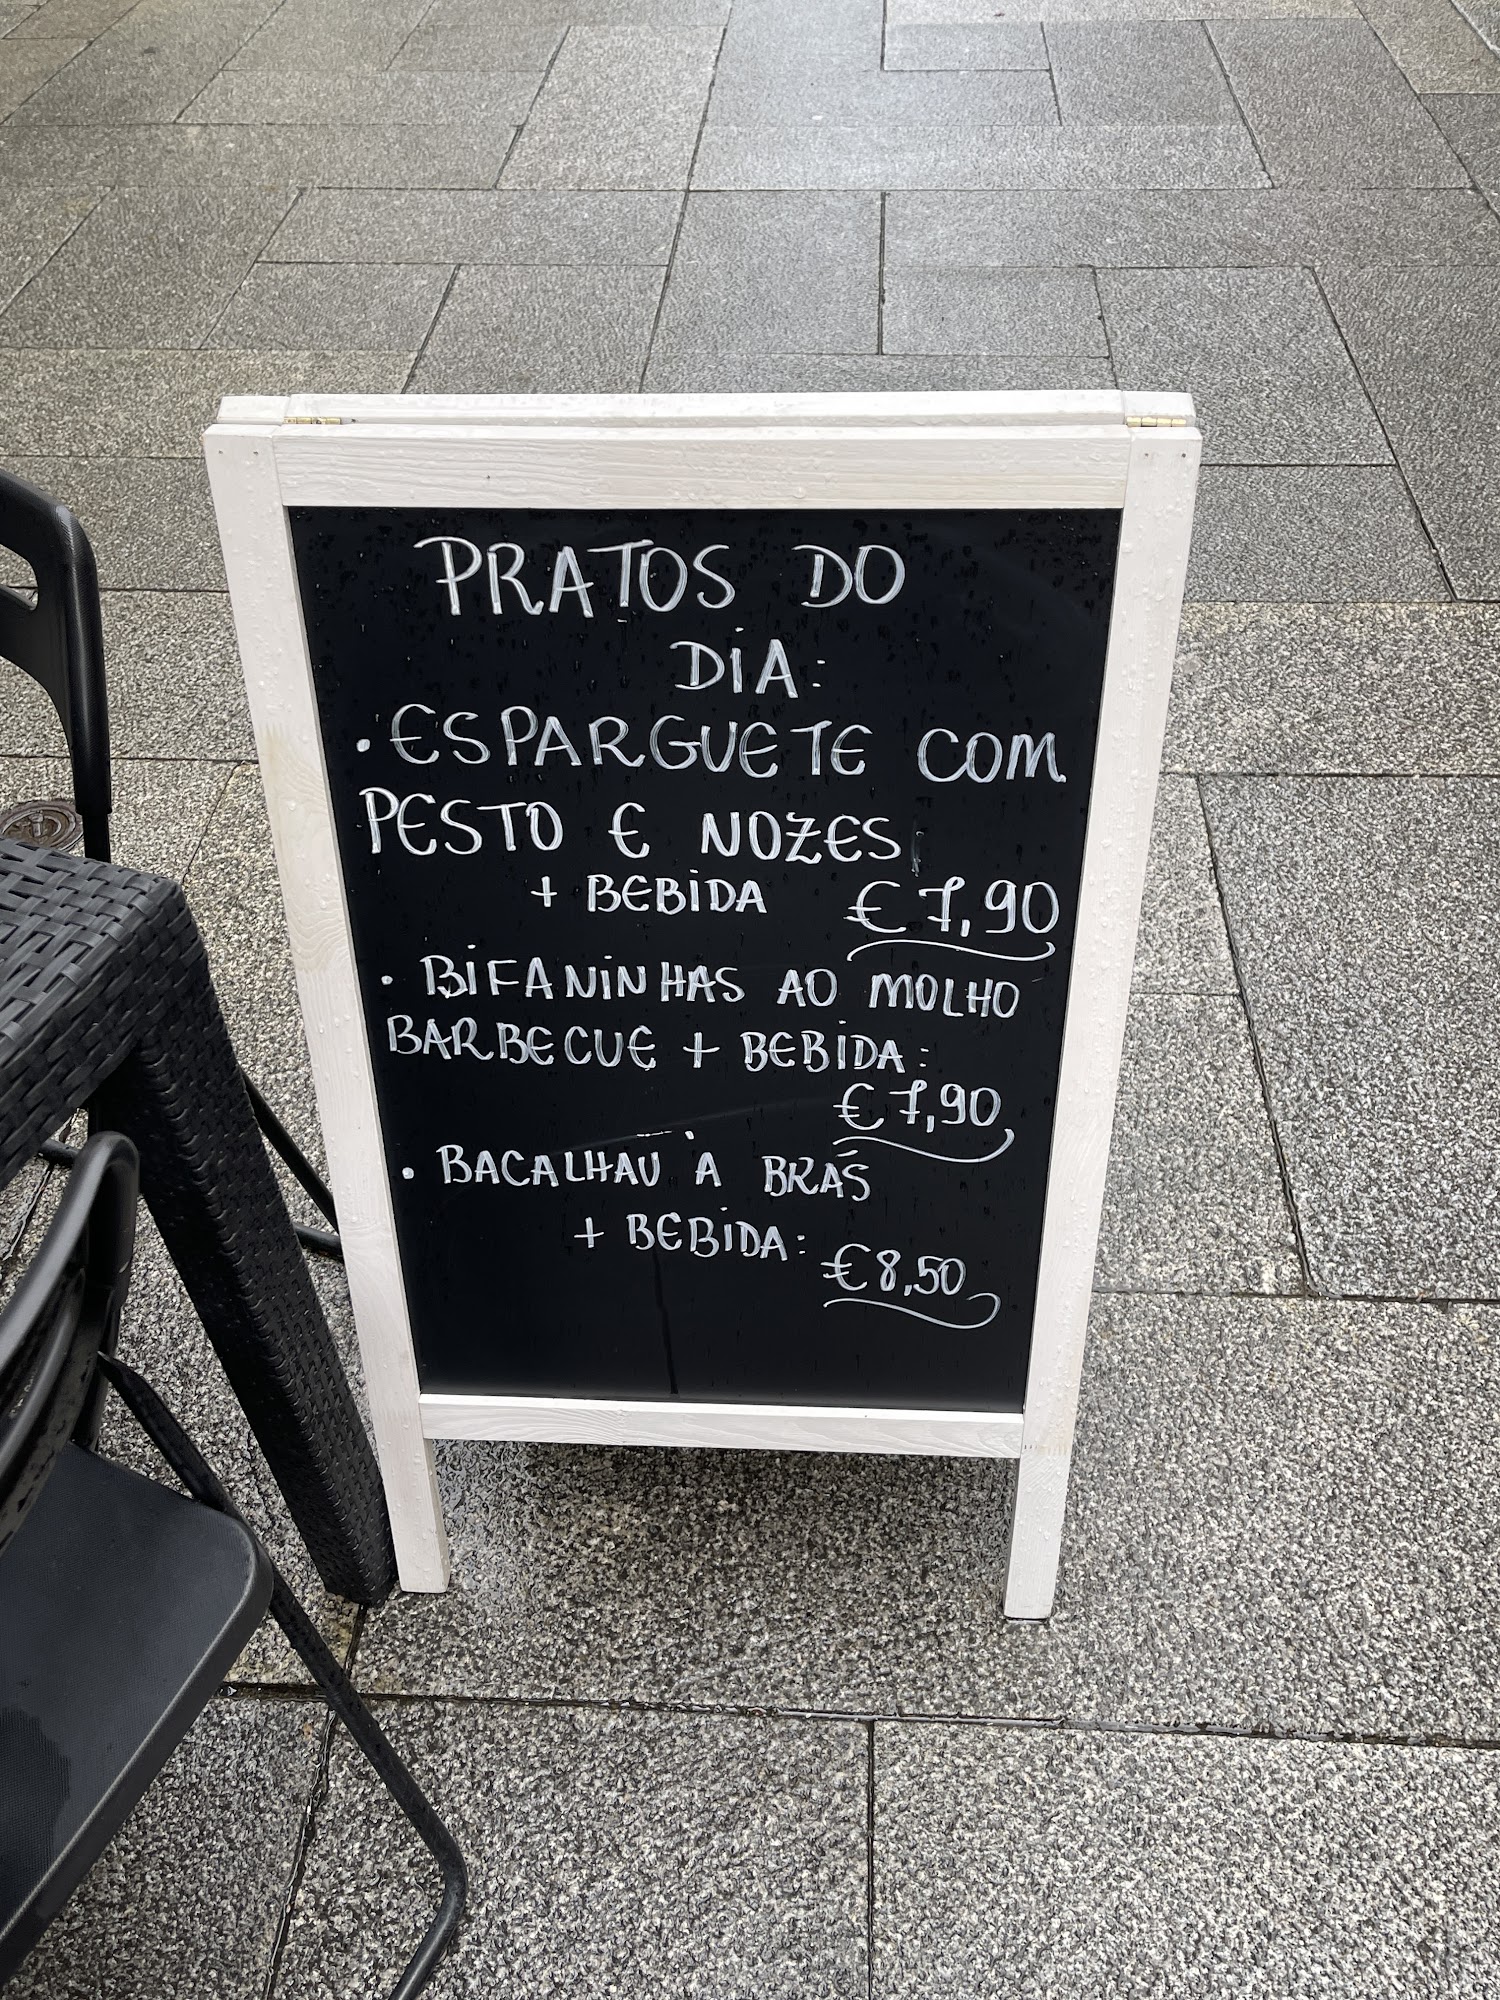 PRATOS DO
DIA:
• ESPARGUETE COM
PESTO E NOZES
+ BEBIDA € 7,90
• BIFANINHAS AO MOLHO
BARBECUE + BEBIDA:
€ 7,90
• BACALHAU À BRÁS
+ BEBIDA: € 8,50